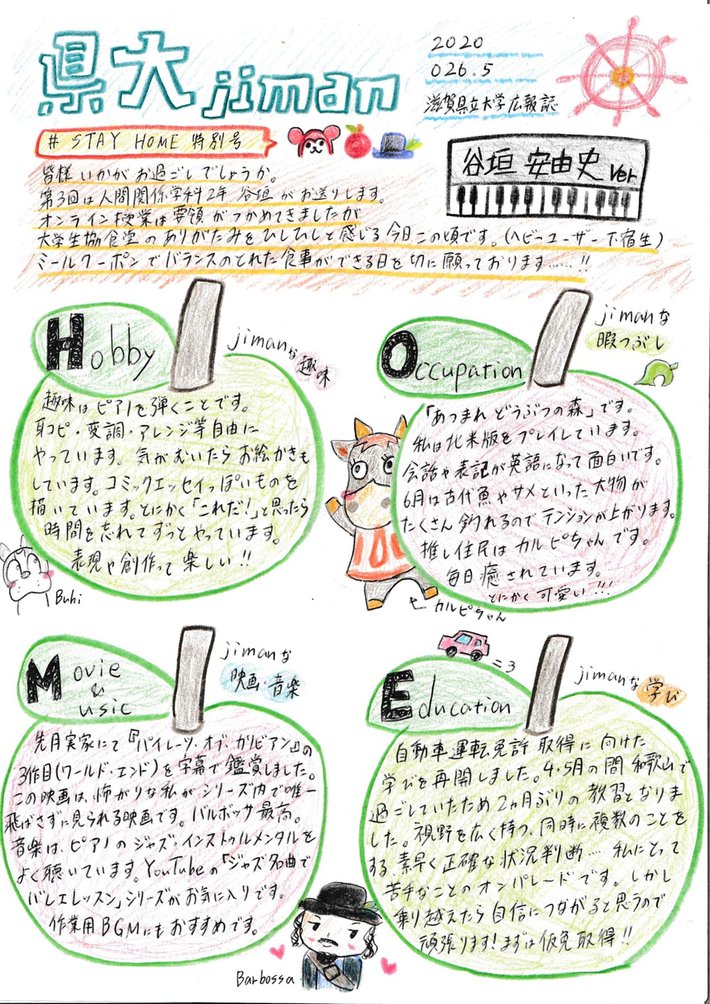 県大jiman
2020
026.5
滋賀県立大学広報誌
# STAY HOME 特別号
谷垣 安由史 Ver
皆様いかがお過ごしでしょうか。
第3回は人間関係学科2年 谷垣がお送りします。
オンライン授業は要領がつかめてきましたが
大学生協食堂のありがたみをひしひしと感じる今日この頃です。(ヘビーユーザー下宿生)
ミールクーポンでバランスのとれた食事ができる日を切に願っております……!!
Hobby
jimanな
趣味
趣味はピアノを弾くことです。
耳コピ・変調・アレンジ等自由に
やっています。気がむいたらお絵かきも
しています。コミックエッセイっぽいものを
描いています。とにかく「これだ!」と思ったら
時間を忘れてずっとやっています。
表現や創作って楽しい!!
Buhi
Occupation
jimanな
暇つぶし
「あつまれどうぶつの森」です。
私は北米版をプレイしています。
会話や表記が英語になって面白いです。
6月は古代魚やサメといった大物が
たくさん釣れるのでテンションが上がります。
推し住民はカルピちゃんです。
毎日癒されています。
とにかく可愛い!!!
カルピちゃん
Movie
&
Music
jimanな
映画・音楽
先月実家にて『パイレーツ・オブ・カリビアン』の
3作目(ワールド・エンド)を字幕で鑑賞しました。
この映画は、怖がりな私がシリーズ内で唯一
飛ばさずに見られる映画です。バルボッサ最高。
音楽は、ピアノのジャズ・インストゥルメンタルを
よく聴いています。YouTubeの「ジャズ名曲で
バレエレッスン」シリーズがお気に入りです。
作業用BGMにもおすすめです。
Barbossa
Education
jimanな
学び
自動車運転免許取得に向けた
学びを再開しました。4・5月の間和歌山で
過ごしていたため2ヵ月ぶりの教習となりま
した。視野を広く持つ、同時に複数のことを
する、素早く正確な状況判断…… 私にとって
苦手なことのオンパレードです。しかし
乗り越えたら自信につながると思うので
頑張ります!まずは仮免取得!!